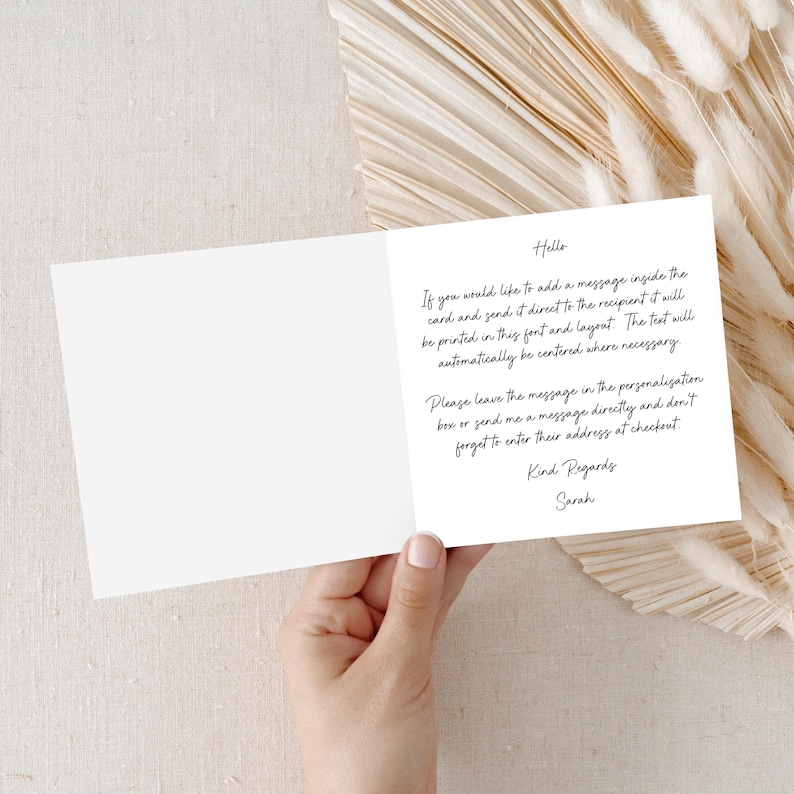 Hello
If you would like to add a message inside the
card and send it direct to the recipient it will
be printed in this font and layout. The text will
automatically be centered where necessary.
Please leave the message in the personalisation
box or send me a message directly and don't
forget to enter their address at checkout.
Kind Regards
Sarah